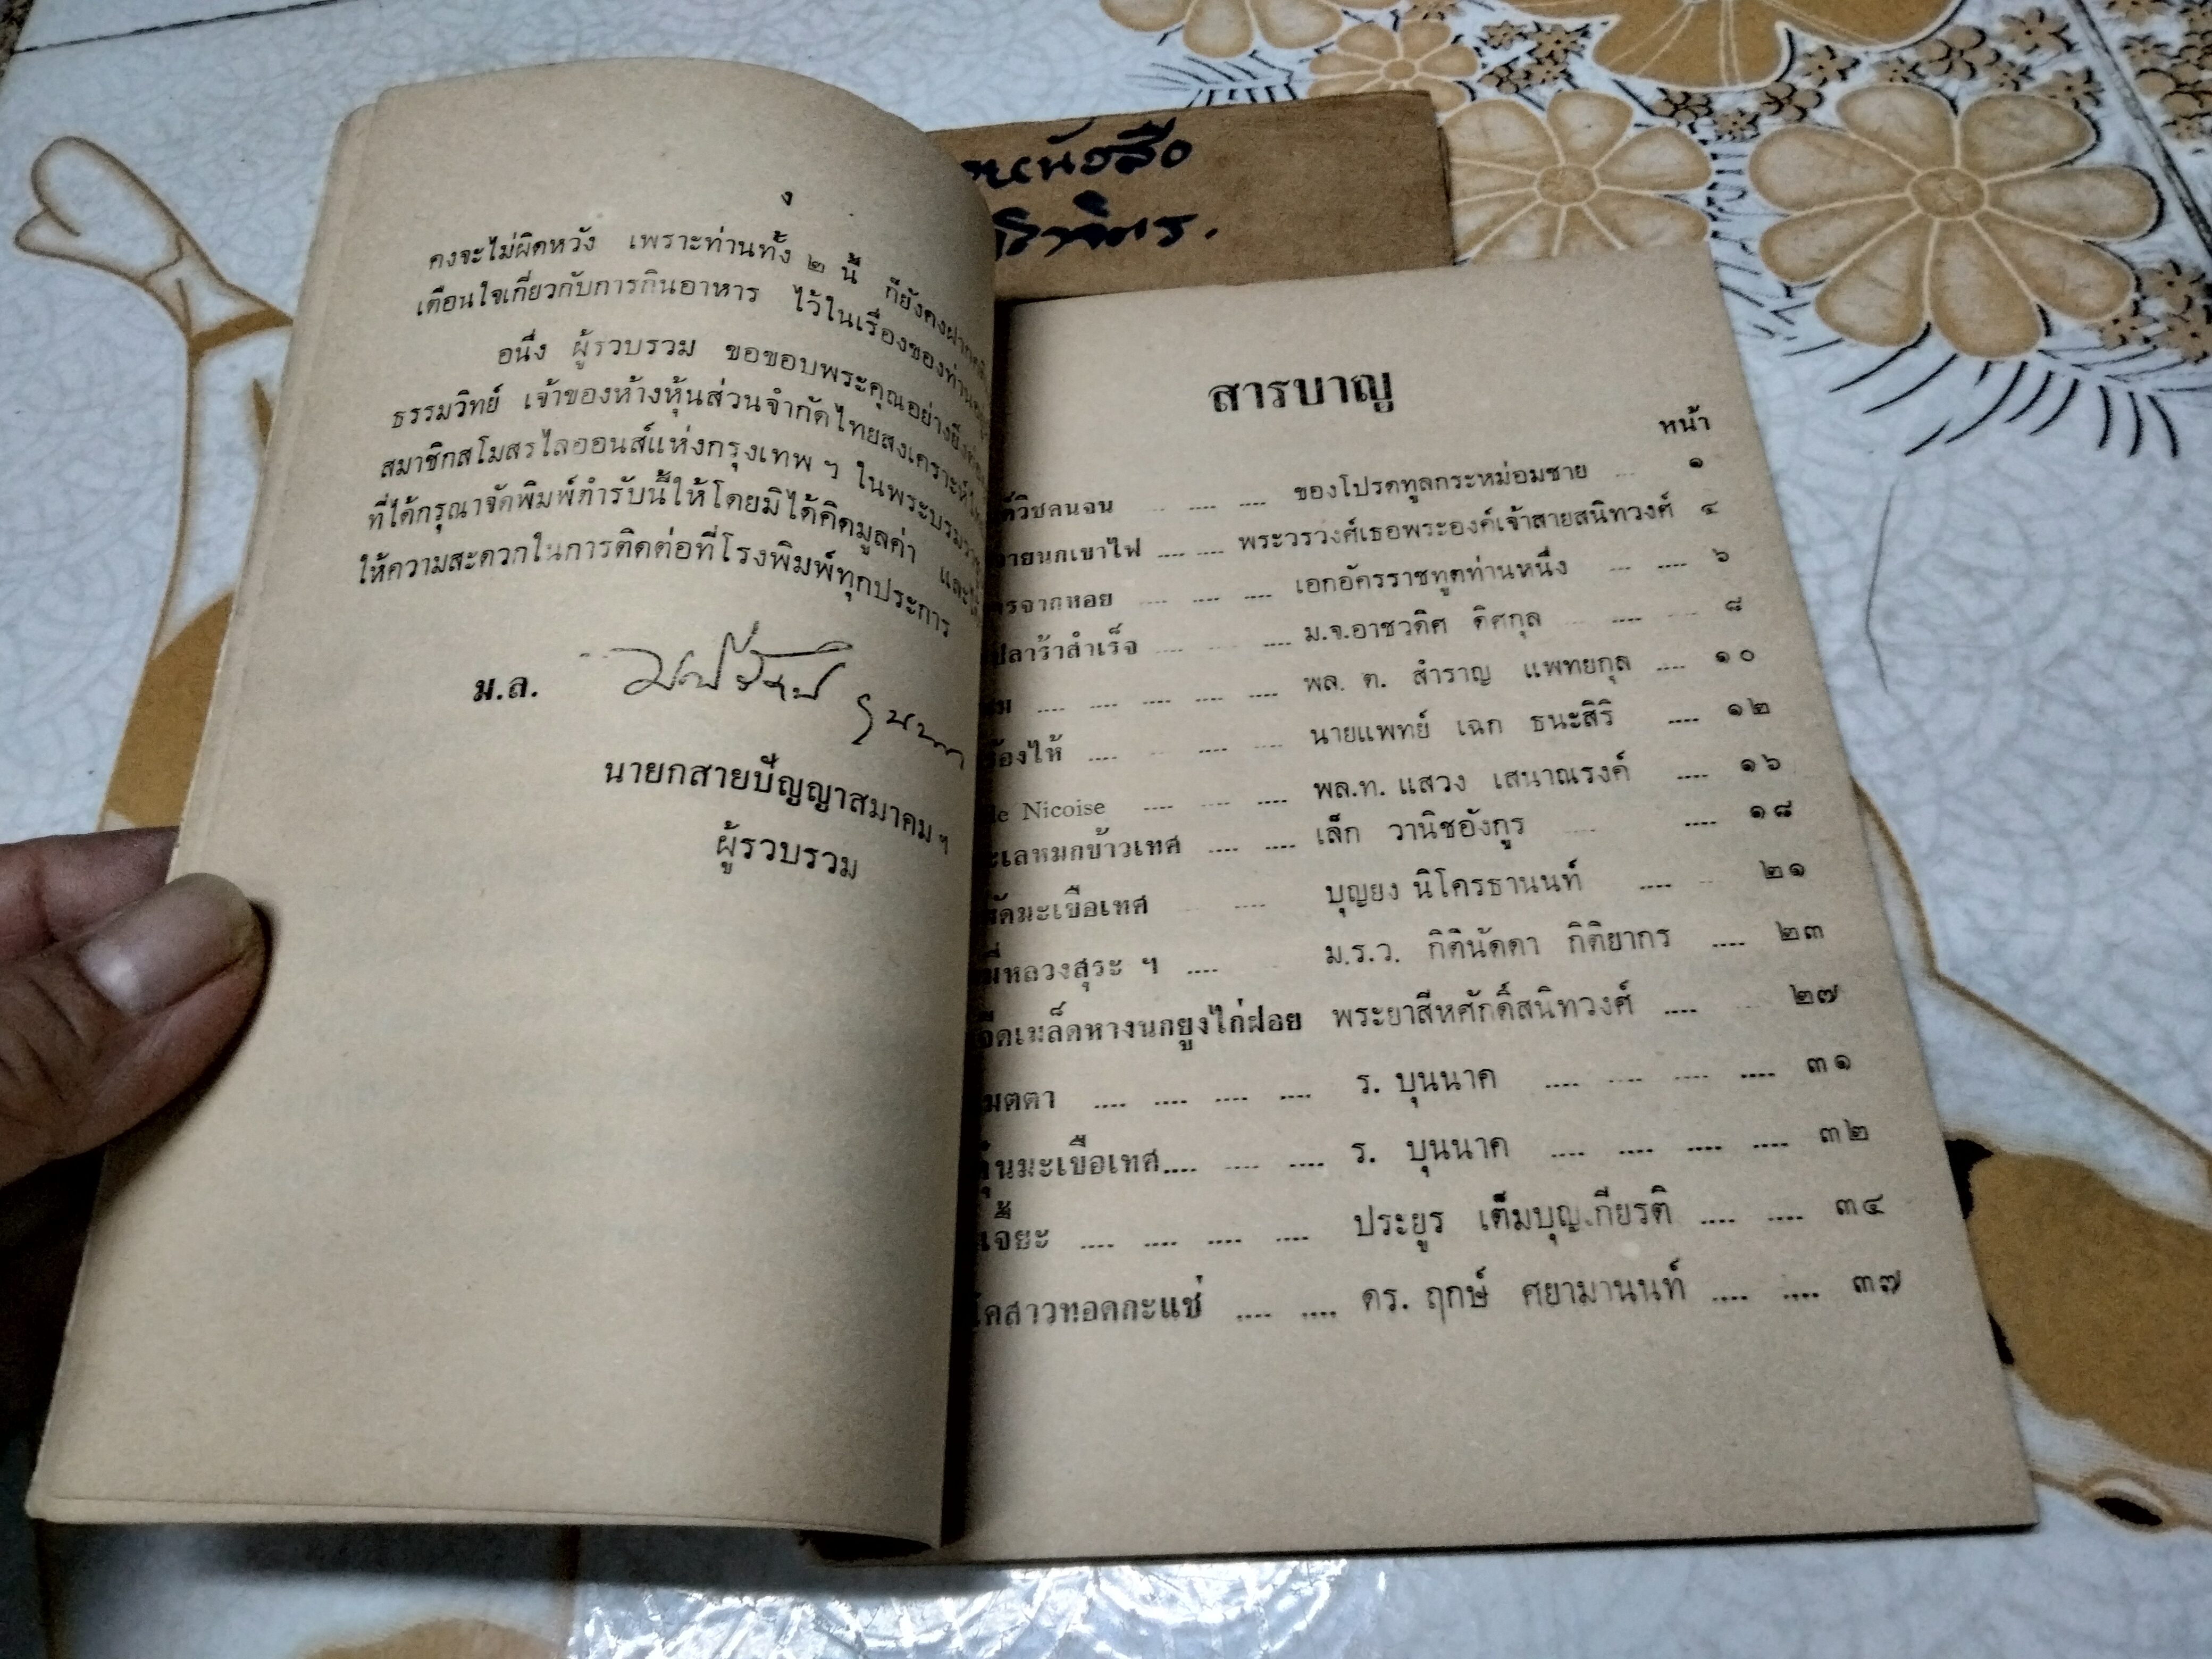 ง
คงจะไม่ผิดหวัง เพราะท่านทั้ง ๒ นี้ ก็ยังคงฝาก
เตือนใจเกี่ยวกับการกินอาหาร ไว้ในเรื่องของท่าน
อนึ่ง ผู้รวบรวม ขอขอบพระคุณอย่างยิ่ง
ธรรมวิทย์ เจ้าของห้างหุ้นส่วนจำกัดไทยสงเคราะห์
สมาชิกสโมสรไลออนส์แห่งกรุงเทพ ฯ ในพระบรม
ที่ได้กรุณาจัดพิมพ์ตำรับนี้ให้โดยมิได้คิดมูลค่า และ
ให้ความสะดวกในการติดต่อที่โรงพิมพ์ทุกประการ
ม.ล.
นายกสายปัญญาสมาคม ฯ
ผู้รวบรวม
หนังสือ
สารบาญ
หน้า
วิชคนจน .... .... ของโปรดทูลกระหม่อมชาย .... ๑
ายนกเขาไฟ .... .... พระวรวงศ์เธอพระองค์เจ้าสายสนิทวงศ์ ๔
รจากหอย .... .... .... เอกอัครราชทูตท่านหนึ่ง .... .... ๖
ปลาร้าสำเร็จ .... .... .... ม.จ.อาชวดิศ ดิศกุล .... .... ๘
ม .... .... .... .... .... พล. ต. สำราญ แพทยกุล .... ๑๐
ร้องไห้ .... .... .... .... นายแพทย์ เฉก ธนะสิริ .... ๑๒
de Nicoise .... .... .... พล.ท. แสวง เสนาณรงค์ .... ๑๖
ะเลหมกข้าวเทศ .... .... เล็ก วานิชอังกูร .... .... ๑๘
สัดมะเขือเทศ .... .... บุญยง นิโครธานนท์ .... .... ๒๑
มี่หลวงสุระ ฯ .... .... ม.ร.ว. กิตินัดดา กิติยากร .... ๒๓
จืดเมล็ดหางนกยูงไก่ฝอย พระยาสีหศักดิ์สนิทวงศ์ .... .... ๒๗
มตตา .... .... .... .... ร. บุนนาค .... .... .... .... ๓๑
ุ้นมะเขือเทศ.... .... .... ร. บุนนาค .... .... .... .... ๓๒
เจี้ยะ .... .... .... .... ประยูร เต็มบุญเกียรติ .... .... ๓๔
โคสาวทอดกะแช่ .... .... ดร. ฤกษ์ ศยามานนท์ .... .... ๓๗